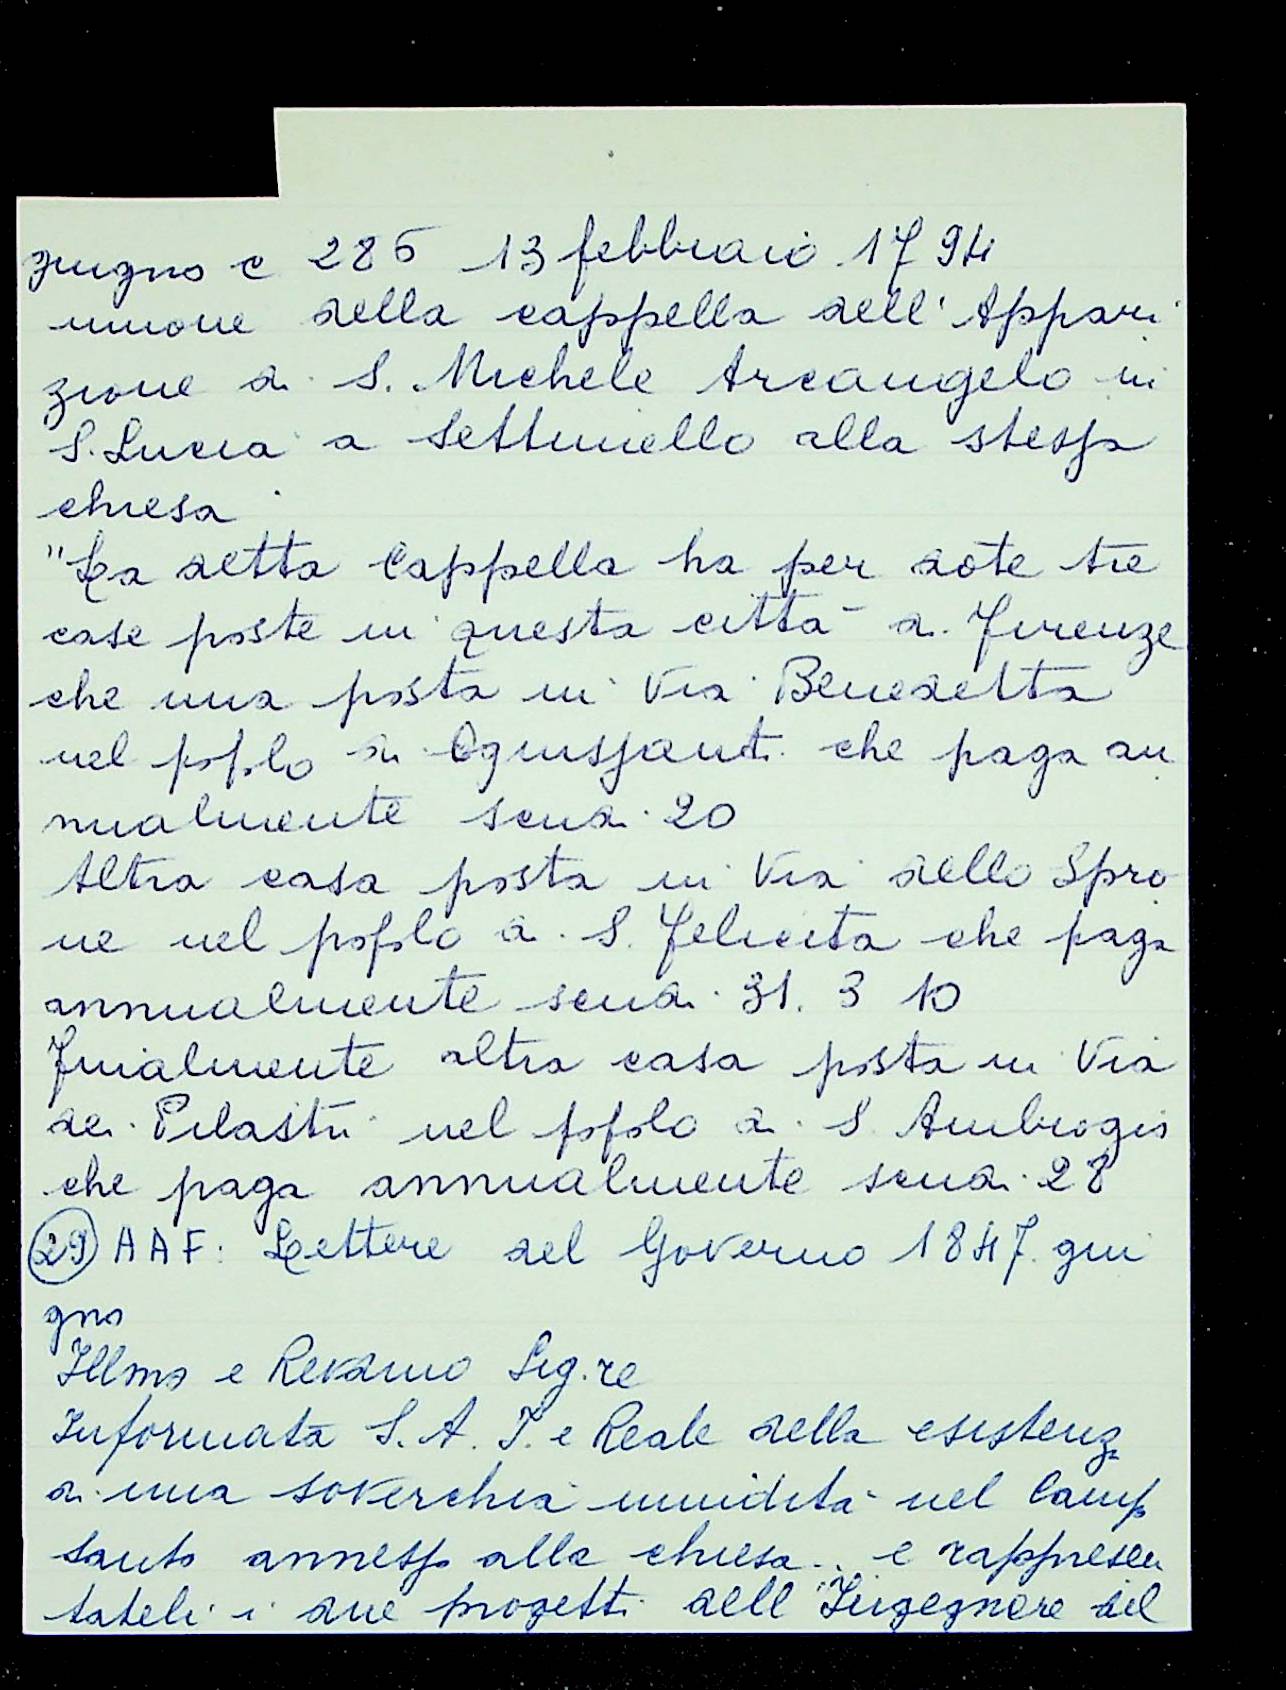 giugno c 286 13 febbraio 1794
unione della cappella dell'Appari
zione di S. Michele Arcangelo in
S. Lucia a Settimello alla stessa
chiesa
"La detta Cappella ha per dote tre
case poste in questa città di Firenze
che una posta in Via Benedetta
nel popolo di Ognissanti che paga an
nualmente scudi 20
Altra casa posta in Via dello Spro
ne nel popolo di S. Felicita che paga
annualmente scudi 31. 3 10
Finalmente altra casa posta in Via
dei Pilastri nel popolo di S. Ambrogio
che paga annualmente scudi 28
29 AAF: Lettere del Governo 1847 giu
gno
Illmo e Revdmo Sig.re
Informata S. A. I. e Reale della esistenza
di una soverchia umidità nel Campo
santo annesso alla chiesa... e rappresen
tateli i due progetti dell'Ingegnere del